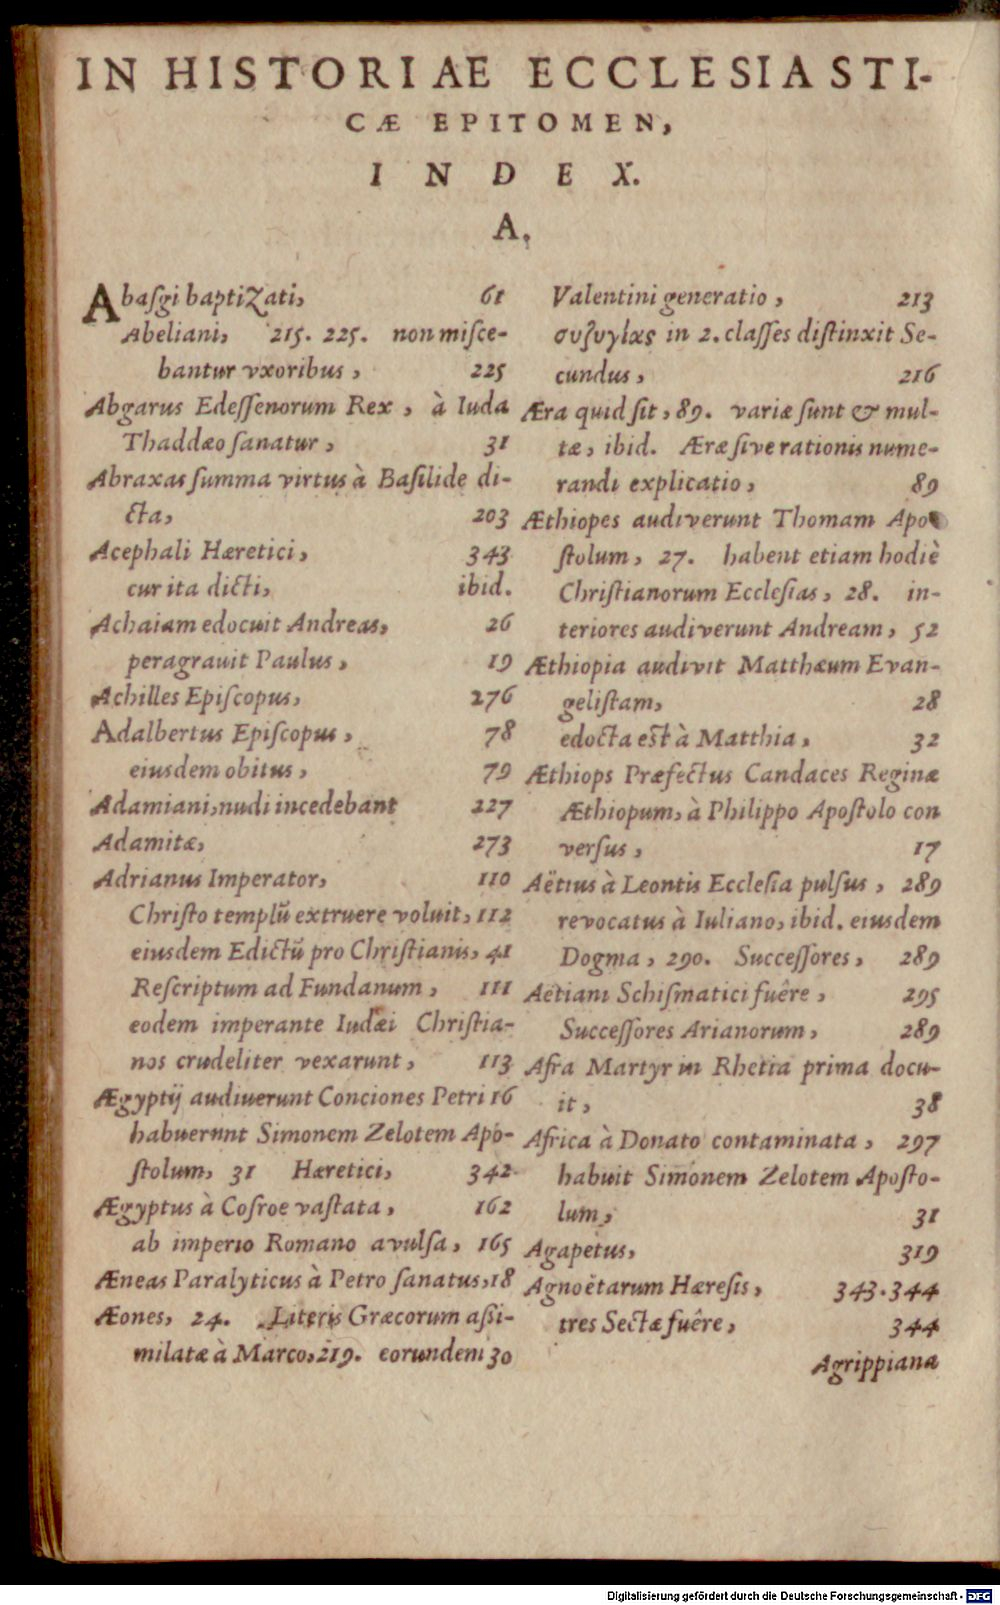 IN HISTORIAE ECCLESIASTI-
CÆ EPITOMEN,
INDEX.
A.
Abaſgi baptizati, 61
Abeliani, 215. 225. non miſce-
bantur vxoribus, 225
Abgarus Edeſſenorum Rex, à Iuda
Thaddæo ſanatur, 31
Abraxas ſumma virtus à Baſilide di-
cta, 203
Acephali Hæretici, 343
cur ita dicti, ibid.
Achaiam edocuit Andreas, 26
peragrauit Paulus, 19
Achilles Epiſcopus, 276
Adalbertus Epiſcopus, 78
eiusdem obitus, 79
Adamiani, nudi incedebant 227
Adamitæ, 273
Adrianus Imperator, 110
Chriſto templū extruere voluit, 112
eiusdem Edictū pro Chriſtianis, 41
Reſcriptum ad Fundanum, 111
eodem imperante Iudæi Chriſtia-
nos crudeliter vexarunt, 113
Ægyptij audiuerunt Conciones Petri 16
habuerunt Simonem Zelotem Apo-
ſtolum, 31 Hæretici, 342
Ægyptus à Coſroe vaſtata, 162
ab imperio Romano avulſa, 165
Æneas Paralyticus à Petro ſanatus, 18
Æones, 24. Literis Græcorum aſſi-
milatæ à Marco, 219. eorundem 30
Valentini generatio, 213
συζυγίας in 2. claſſes diſtinxit Se-
cundus, 216
Æra quid ſit, 89. variæ ſunt & mul-
tæ, ibid. Æræ ſive rationis nume-
randi explicatio, 89
Æthiopes audiverunt Thomam Apo
ſtolum, 27. habent etiam hodiè
Chriſtianorum Eccleſias, 28. in-
teriores audiverunt Andream, 52
Æthiopia audivit Matthæum Evan-
geliſtam, 28
edocta eſt à Matthia, 32
Æthiops Præfectus Candaces Reginæ
Æthiopum, à Philippo Apoſtolo con
verſus, 17
Aëtius à Leontis Eccleſia pulſus, 289
revocatus à Iuliano, ibid. eiusdem
Dogma, 290. Succeſſores, 289
Aetiani Schiſmatici fuêre, 295
Succeſſores Arianorum, 289
Afra Martyr in Rhetia prima docu-
it, 38
Africa à Donato contaminata, 297
habuit Simonem Zelotem Apoſto-
lum, 31
Agapetus, 319
Agnoëtarum Hæreſis, 343.344
tres Sectæ fuêre, 344
Agrippiana
Digitalisierung gefördert durch die Deutsche Forschungsgemeinschaft - DFG